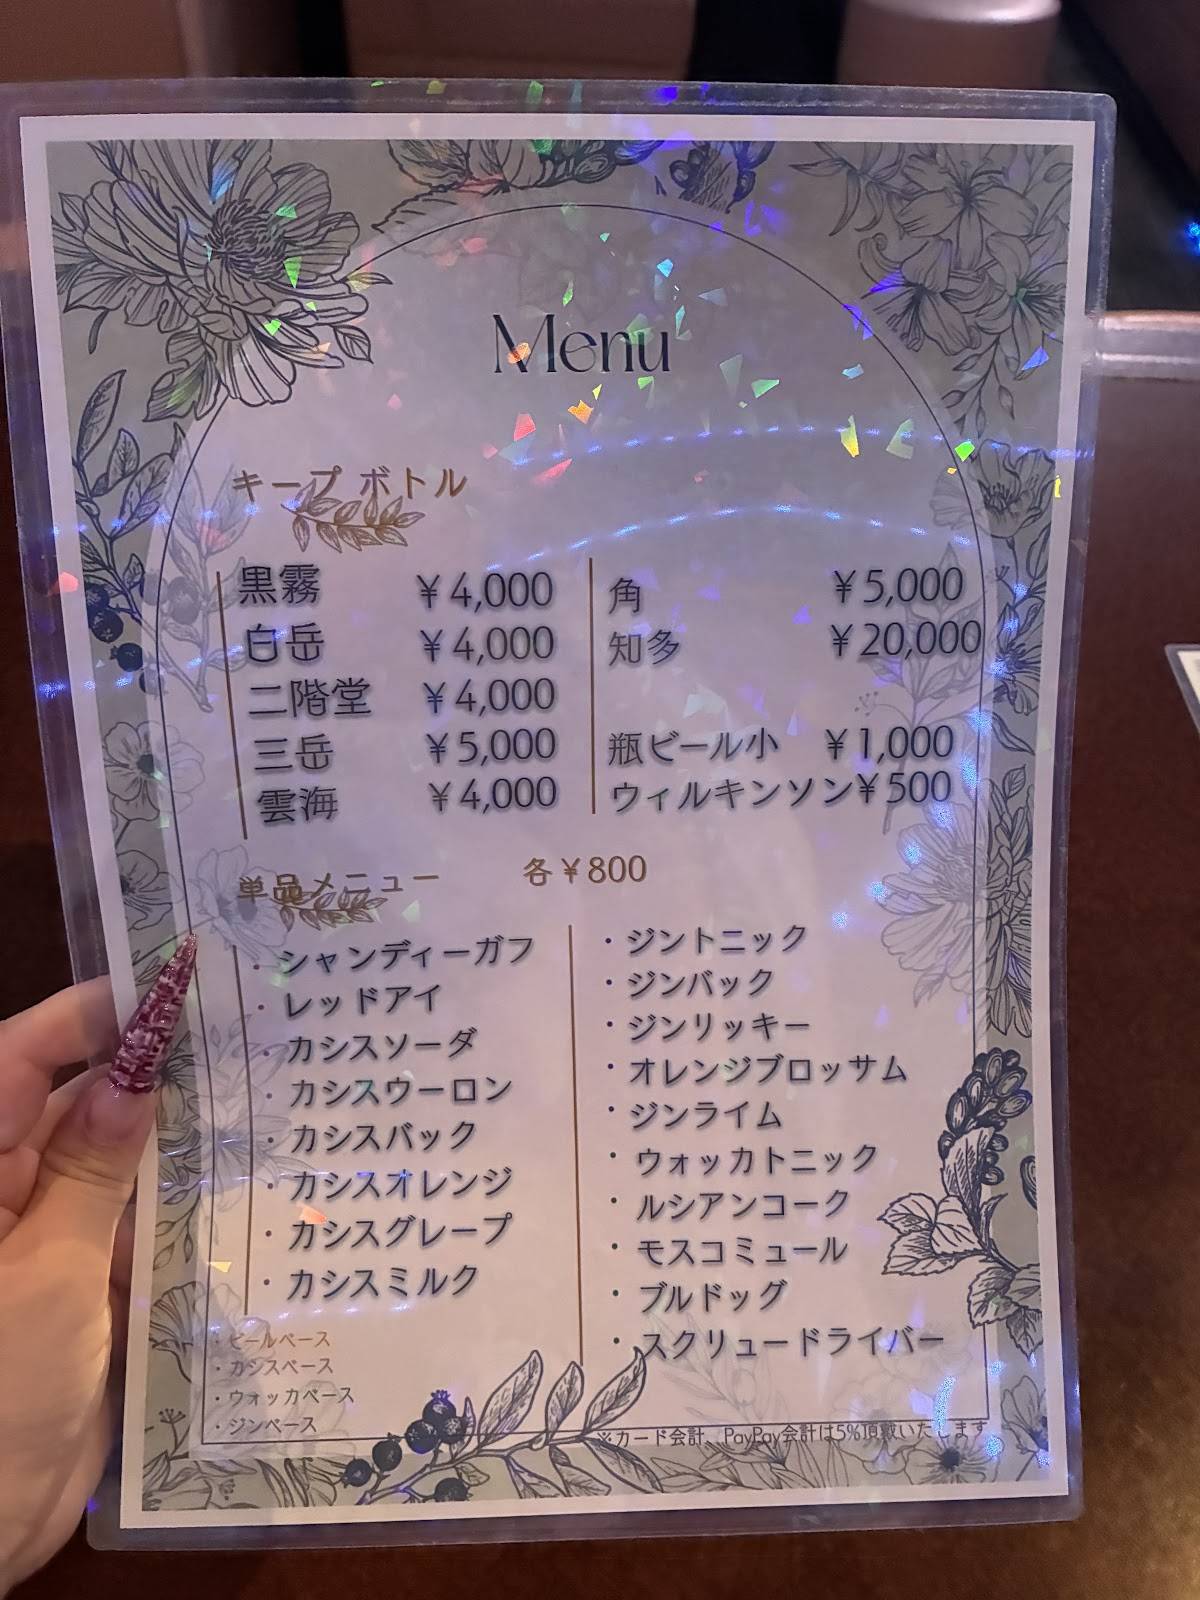 Menu
キープ ボトル
黒霧 ¥4,000
白岳 ¥4,000
二階堂 ¥4,000
三岳 ¥5,000
雲海 ¥4,000
角 ¥5,000
知多 ¥20,000
瓶ビール小 ¥1,000
ウィルキンソン¥500
単品メニュー 各¥800
・シャンディーガフ
・レッドアイ
・カシスソーダ
・カシスウーロン
・カシスバック
・カシスオレンジ
・カシスグレープ
・カシスミルク
・ジントニック
・ジンバック
・ジンリッキー
・オレンジブロッサム
・ジンライム
・ウォッカトニック
・ルシアンコーク
・モスコミュール
・ブルドッグ
・スクリュードライバー
・ビールベース
・カシスベース
・ウォッカベース
・ジンベース
※カード会計、PayPay会計は5%頂戴いたします